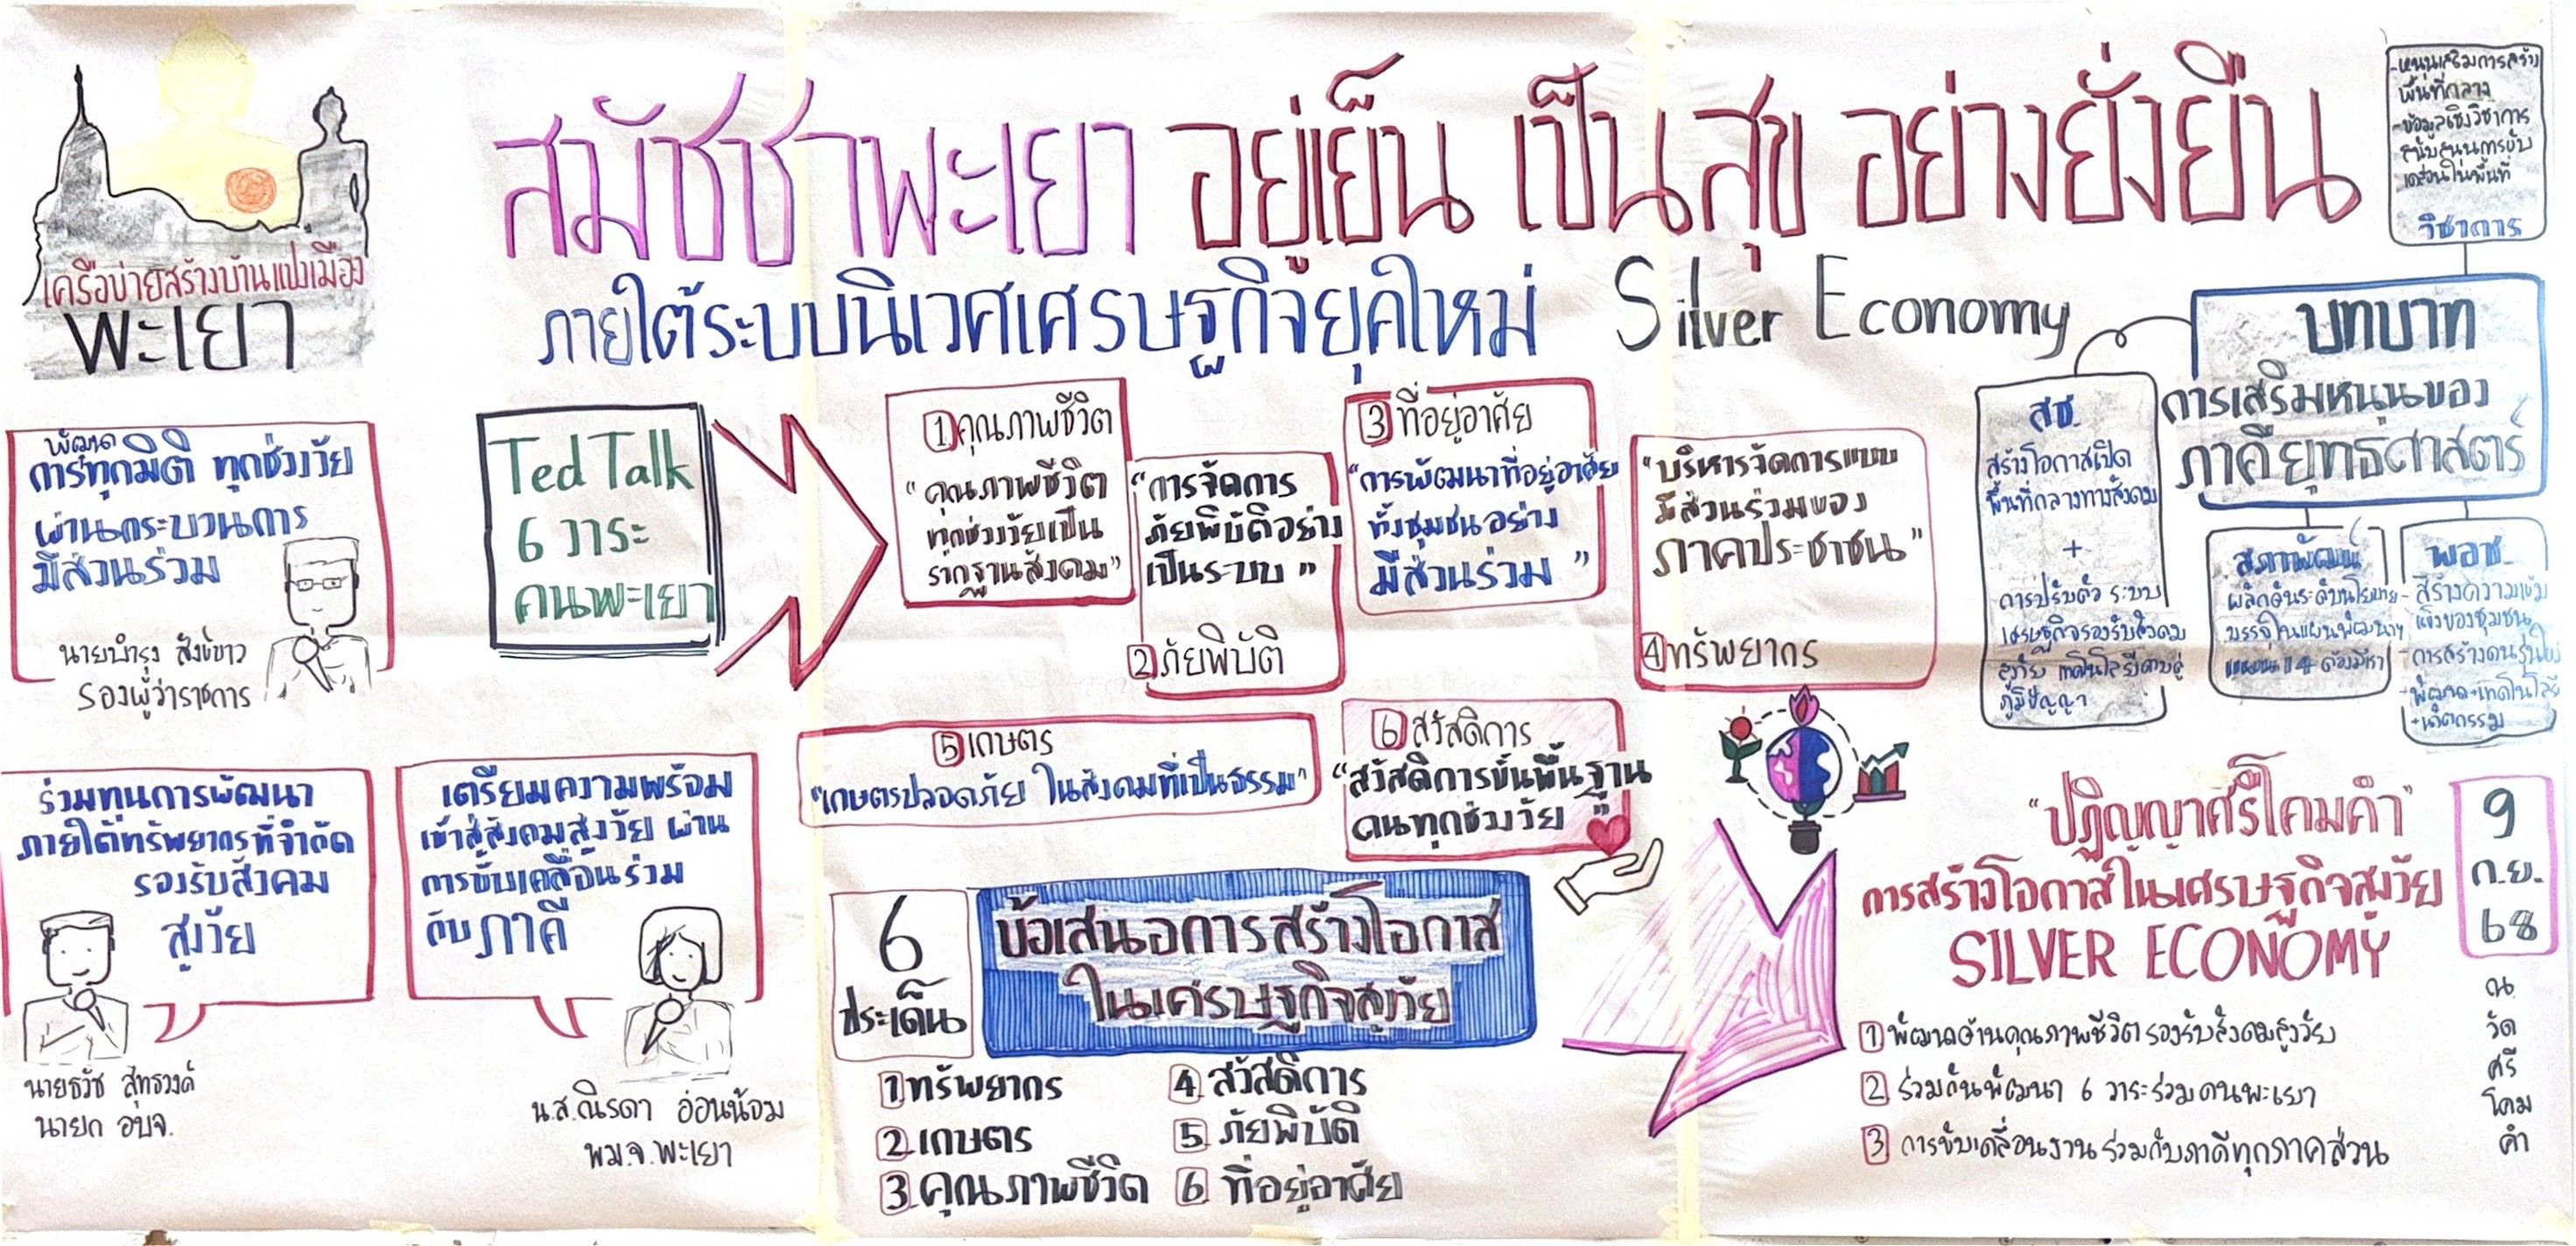 เครือข่ายสร้างบ้านแปงเมือง
พะเยา
สมัชชาพะเยา อยู่เย็น เป็นสุข อย่างยั่งยืน
ภายใต้ระบบนิเวศเศรษฐกิจยุคใหม่ Silver Economy
พัฒนา
การทุกมิติ ทุกช่วงวัย
ผ่านกระบวนการ
มีส่วนร่วม
นายบำรุง สังข์ขาว
รองผู้ว่าราชการ
ร่วมทุนการพัฒนา
ภายใต้ทรัพยากรที่จำกัด
รองรับสังคม
สูงวัย
นายธวัช สุทธวงค์
นายก อบจ.
เตรียมความพร้อม
เข้าสู่สังคมสูงวัย ผ่าน
การขับเคลื่อนร่วม
กับภาคี
น.ส.ณิรดา อ่อนน้อม
พม.จ.พะเยา
Ted Talk
6 วาระ
คนพะเยา
1 คุณภาพชีวิต
"คุณภาพชีวิต
ทุกช่วงวัยเป็น
รากฐานสังคม"
"การจัดการ
ภัยพิบัติอย่าง
เป็นระบบ"
2 ภัยพิบัติ
3 ที่อยู่อาศัย
"การพัฒนาที่อยู่อาศัย
ทั้งชุมชนอย่าง
มีส่วนร่วม"
"บริหารจัดการแบบ
มีส่วนร่วมของ
ภาคประชาชน"
4 ทรัพยากร
5 เกษตร
"เกษตรปลอดภัย ในสังคมที่เป็นธรรม"
6 สวัสดิการ
"สวัสดิการขั้นพื้นฐาน
คนทุกช่วงวัย"
6
ประเด็น
ข้อเสนอการสร้างโอกาส
ในเศรษฐกิจสูงวัย
1 ทรัพยากร
2 เกษตร
3 คุณภาพชีวิต
4 สวัสดิการ
5 ภัยพิบัติ
6 ที่อยู่อาศัย
- หนุนเสริมการสร้าง
พื้นที่กลาง
- ข้อมูลเชิงวิชาการ
สนับสนุนการขับ
เคลื่อนในพื้นที่
วิชาการ
บทบาท
การเสริมหนุนของ
ภาคียุทธศาสตร์
สช.
สร้างโอกาสเปิด
พื้นที่กลางทางสังคม
+
การปรับตัว ระบบ
เศรษฐกิจรองรับสังคม
สูงวัย เทคโนโลยีควบคู่
ภูมิปัญญา
สภาพัฒน์
ผลักดันระดับนโยบาย
บรรจุในแผนพัฒนาฯ
แผนที่ 14 ต้องมีเรา
พอช.
- สร้างความเข้ม
แข็งของชุมชน
- การสร้างคนรุ่นใหม่
- พัฒนา + เทคโนโลยี
+ นวัตกรรม
"ปฏิญญาศรีโคมคำ"
การสร้างโอกาสในเศรษฐกิจสูงวัย
SILVER ECONOMY
1 พัฒนาด้านคุณภาพชีวิตรองรับสังคมสูงวัย
2 ร่วมกันพัฒนา 6 วาระร่วมคนพะเยา
3 การขับเคลื่อนงานร่วมกับภาคีทุกภาคส่วน
9
ก.ย.
68
ณ
วัด
ศรี
โคม
คำ